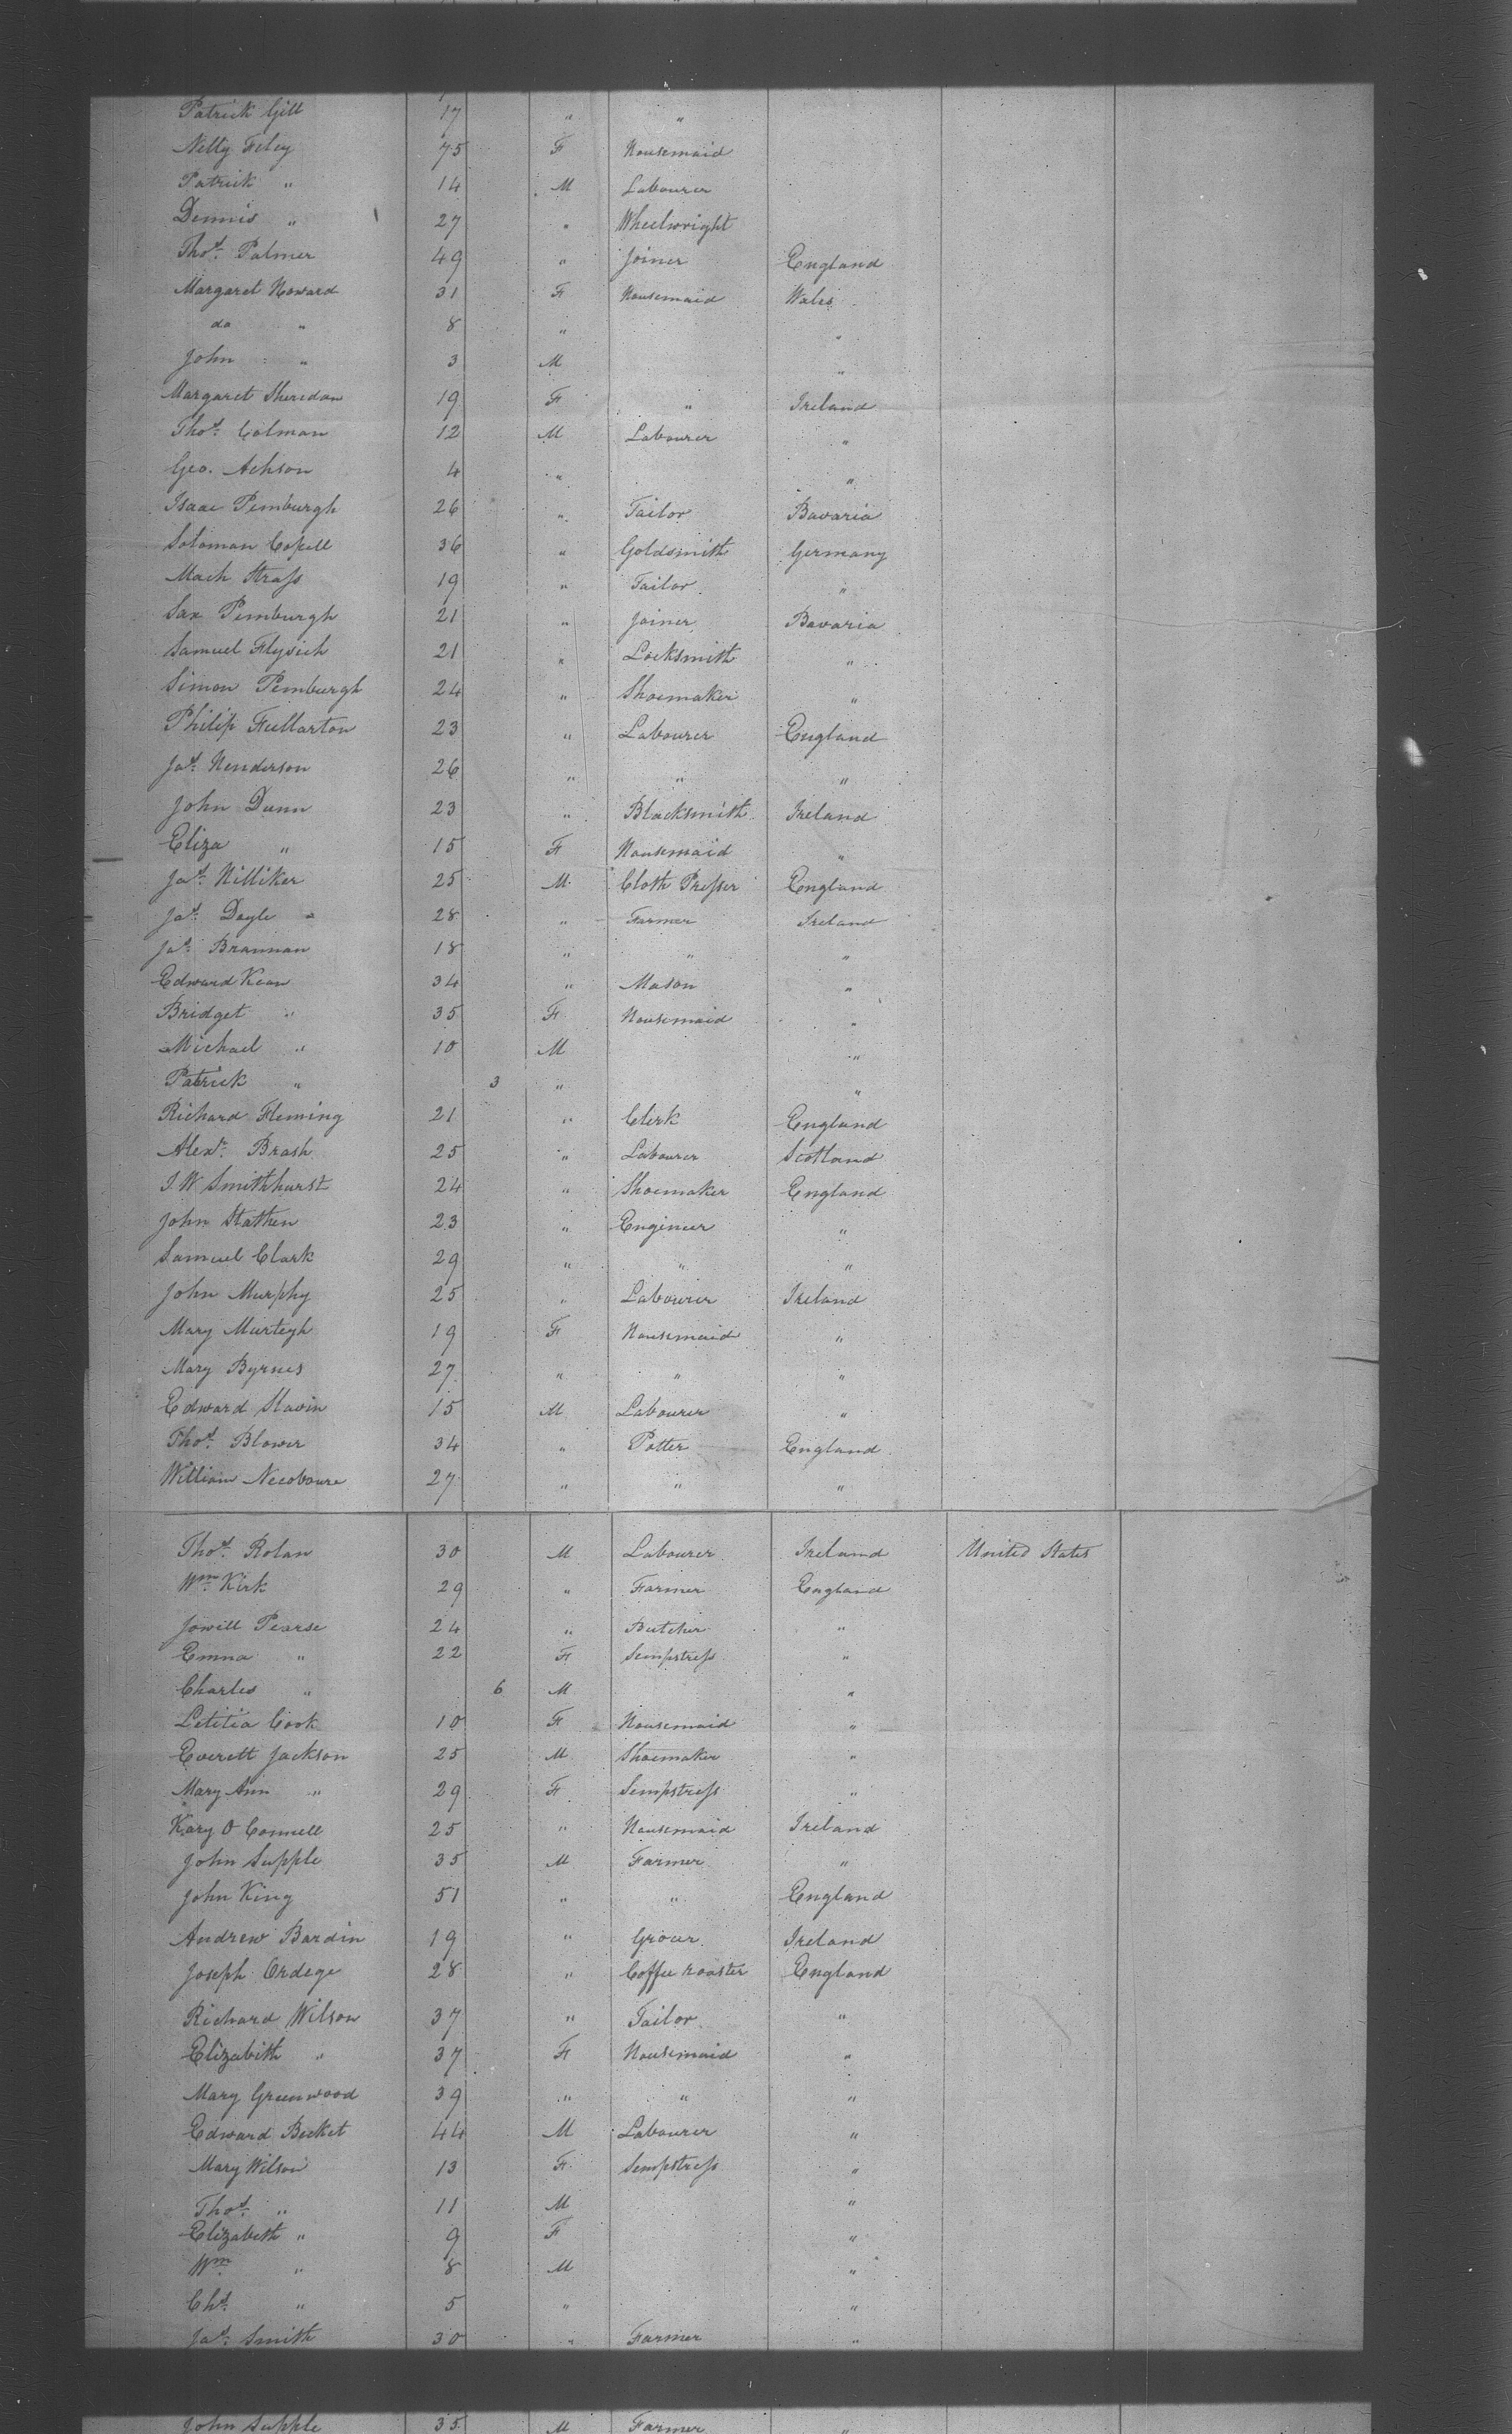 Patrick Gill 17 " "
Nelly Foley 75 F Housemaid
Patrick " 14 M Labourer
Dennis " 27 " Wheelwright
Thos. Palmer 49 " Joiner England
Margaret Howard 31 F Housemaid Wales
do " 8 " "
John " 3 M "
Margaret Sheridan 19 F " Ireland
Thos. Colman 12 M Labourer "
Geo. Achson 4 " "
Isaac Pemburgh 26 " Tailor Bavaria
Soloman Copell 36 " Goldsmith Germany
Mach Strass 19 " Tailor "
Sax Pemburgh 21 " Joiner Bavaria
Samuel 21 " Locksmith "
Simon Pemburgh 24 " Shoemaker "
Philip Fullarton 23 " Labourer England
Jas. Henderson 26 " " "
John Dunn 23 " Blacksmith Ireland
Eliza " 15 F Housemaid "
Jas. Hilliker 25 M Cloth Presser England
Jas. Doyle 28 " Farmer Ireland
Jas. Brannan 18 " " "
Edward Kean 34 " Mason "
Bridget " 35 F Housemaid "
Michael " 10 M "
Patrick " 3 " "
Richard Fleming 21 " Clerk England
Alexr. Brash 25 " Labourer Scotland
J. W Smithhurst 24 " Shoemaker England
John Stathen 23 " Engineer "
Samuel Clark 29 " " "
John Murphy 25 " Labourer Ireland
Mary Murtegh 19 F Housemaid "
Mary Byrnes 27 " " "
Edward Slavin 15 M Labourer "
Thos. Blower 34 " Potter England
William 27 " " "
Thos. Rolan 30 M Labourer Ireland United States
Wm. Kirk 29 " Farmer England
Jowill Pearse 24 " Butcher "
Emma " 22 F Sempstress "
Charles " 6 M "
Letitia Cook 10 F Housemaid "
Everett Jackson 25 M Shoemaker "
Mary Ann " 29 F Sempstress "
Kary O Connell 25 " Housemaid Ireland
John Supple 35 M Farmer "
John King 51 " " England
Andrew Bardin 19 " Grocer Ireland
Joseph Ordege 28 " Coffee roaster England
Richard Wilson 37 " Tailor "
Elizabeth " 37 F Housemaid "
Mary Greenwood 39 " " "
Edward Becket 44 M Labourer "
Mary Wilson 13 F Sempstress "
Thos. " 11 M "
Elizabeth " 9 F "
Wm. " 8 M "
Chs. " 5 " "
Jas. Smith 30 " Farmer "
John Supple 35 M Farmer "